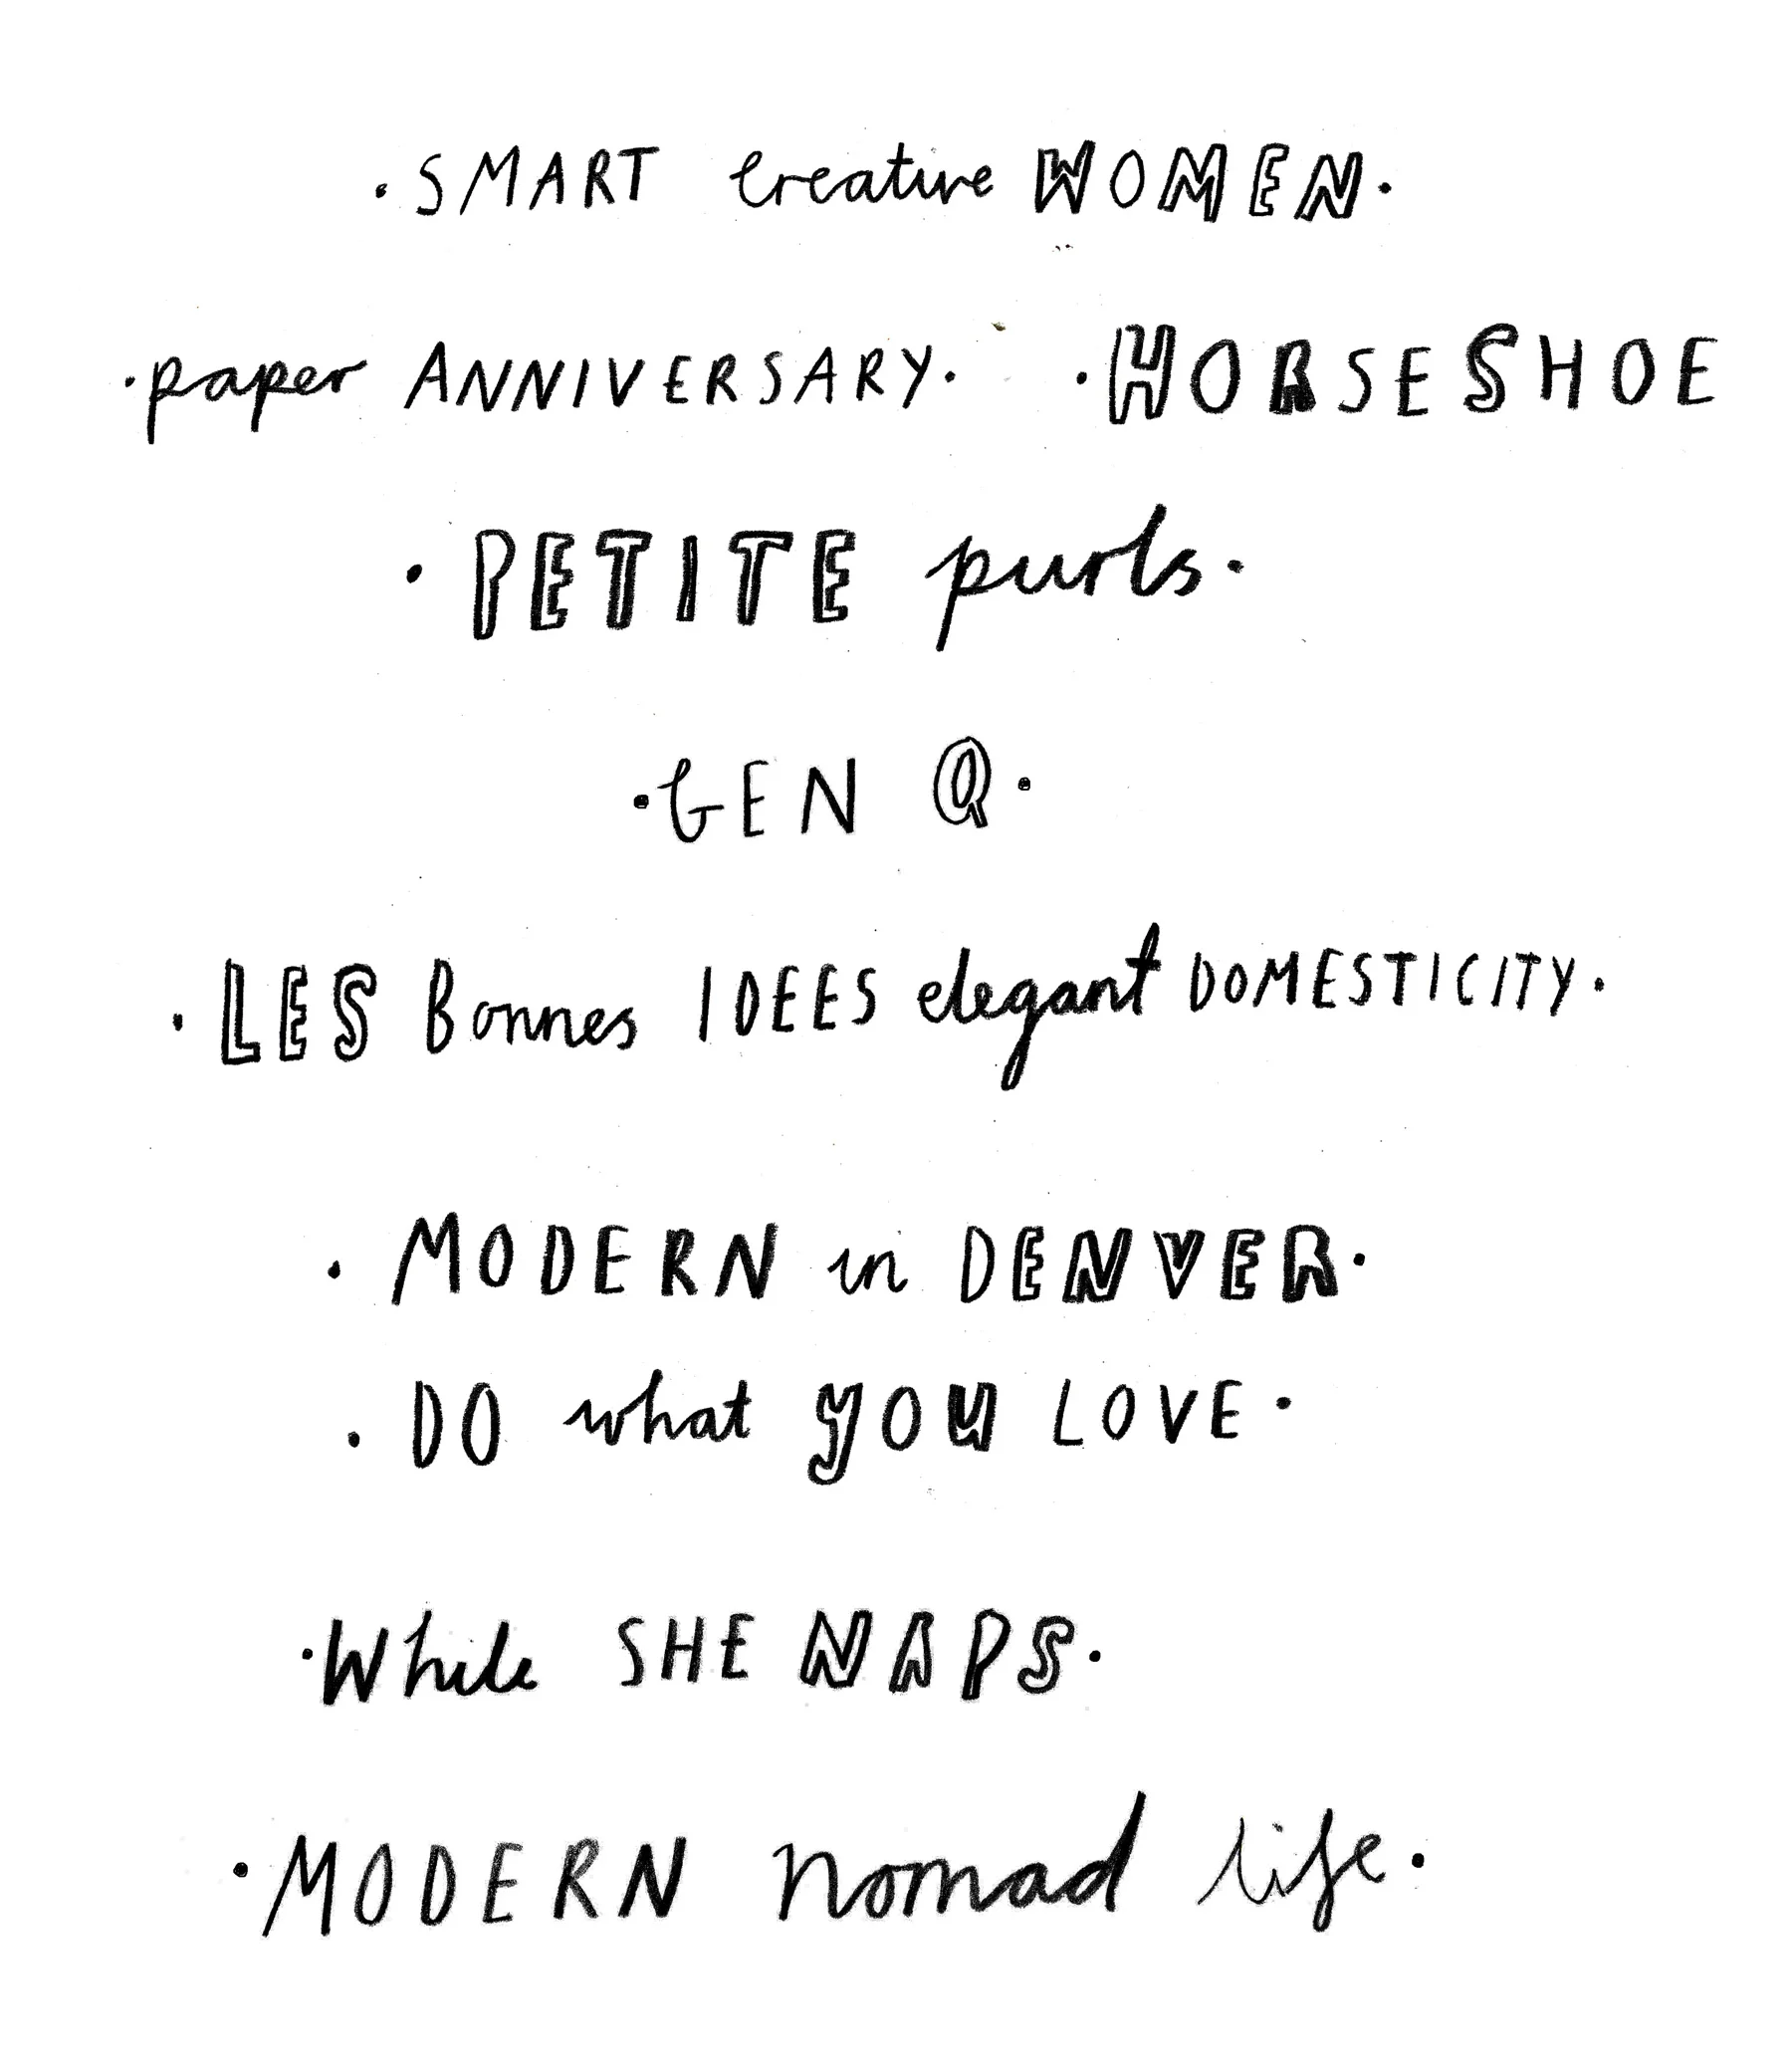 ·SMART creative WOMEN·
·paper ANNIVERSARY· ·HORSESHOE
·PETITE purls·
·GEN Q·
·LES Bonnes IDEES elegant DOMESTICITY·
·MODERN in DENVER·
·DO what YOU LOVE·
·While SHE NAPS·
·MODERN nomad life·